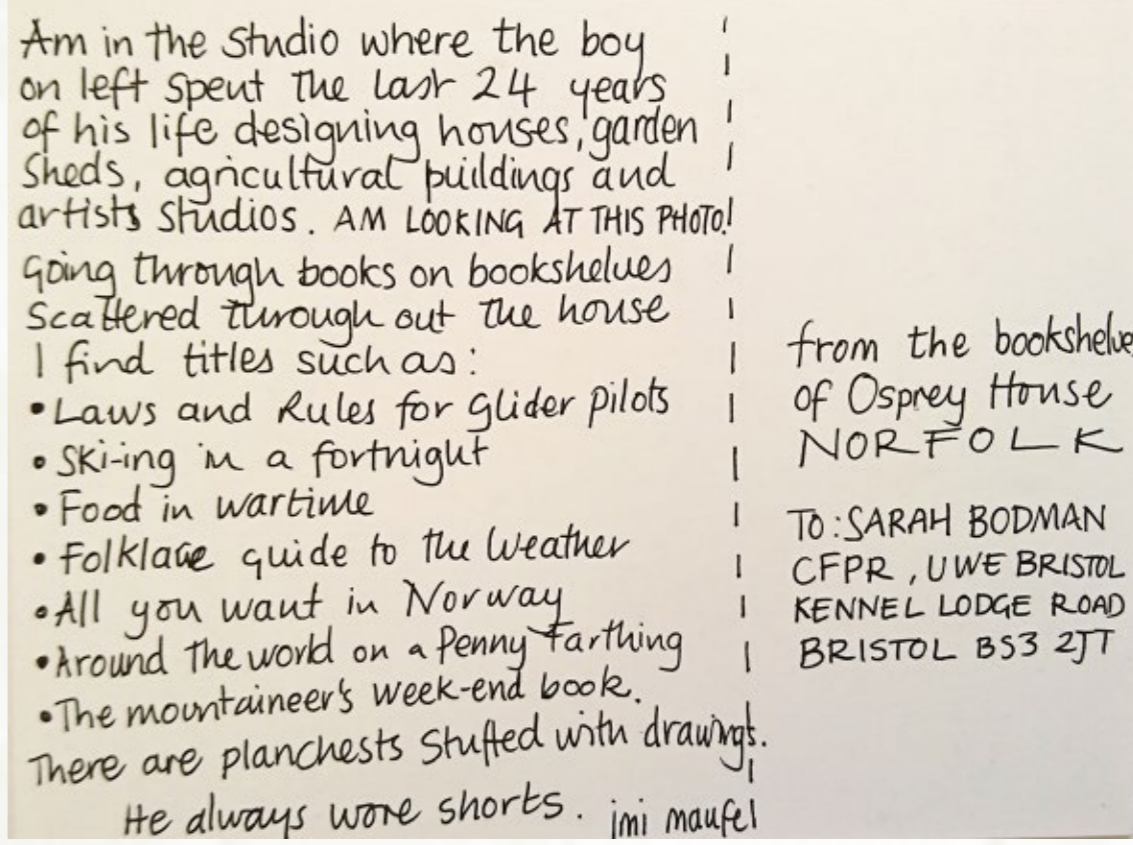 Am in the Studio where the boy
on left spent the last 24 years
of his life designing houses, garden
Sheds, agricultural buildings and
artists studios. AM LOOKING AT THIS PHOTO!
Going through books on bookshelves
Scattered through out the house
I find titles such as:
• Laws and Rules for Glider pilots
• Ski-ing in a fortnight
• Food in wartime
• Folklace guide to the Weather
• All you want in Norway
• Around the world on a Penny Farthing
• The mountaineer's week-end book.
There are planchests stuffed with drawings.
He always wore shorts. imi maufe
from the bookshelve
of Osprey House
NORFOLK
TO: SARAH BODMAN
CFPR, UWE BRISTOL
KENNEL LODGE ROAD
BRISTOL BS3 2JT